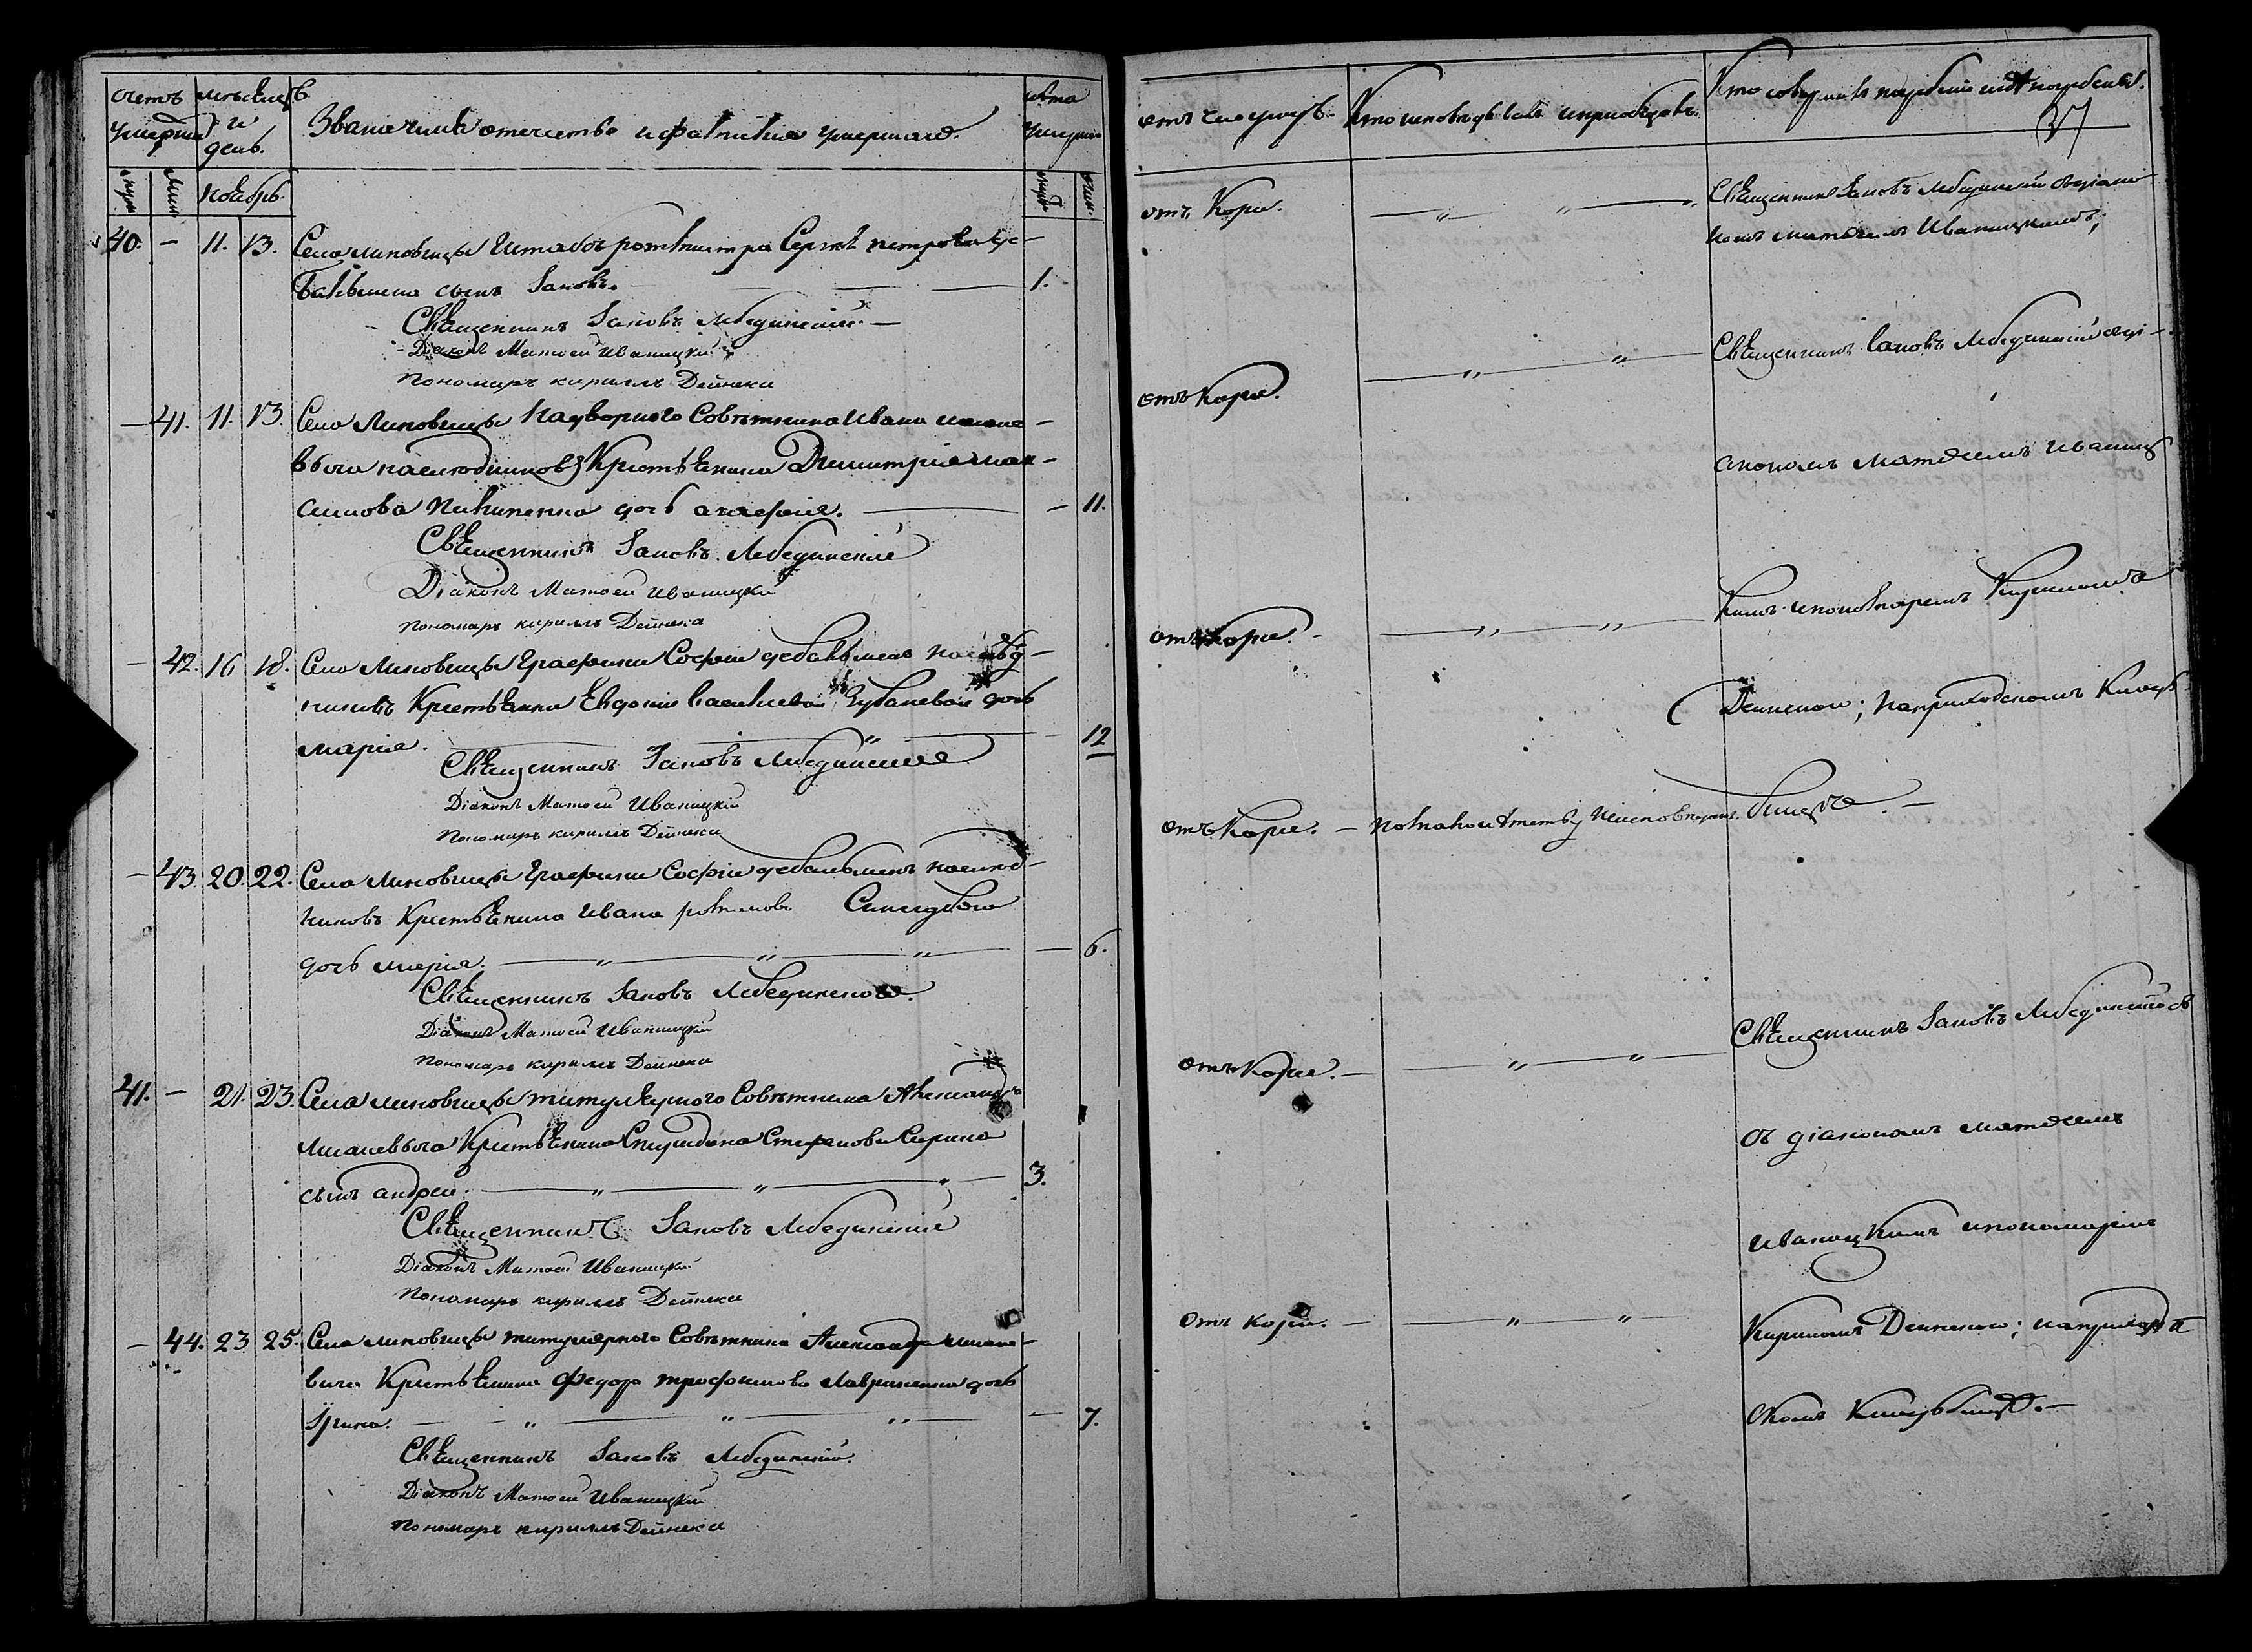 счетъ умершихъ
мѣсецъ и день.
Званіе имя отечество и фамилія умершаго.
лѣта умерша
муж
жен
ноябрь.
муж
жен.
40. — 11. 13. Села Линовицы Штабсъ ротмистра Сергѣя петрова
сынъ Іаковъ. — 1.
Священникъ Іаковъ Лебединскій. —
Діаконъ Матѳей Иваницкій
Пономаръ кириллъ Дейнека
— 41. 11. 13. Села Линовицы Надворного Совѣтника Ивана
Крестьянина Димитрія мак-
симова дочь агафія. — 11.
Священникъ Іаковъ Лебединскій
Діаконъ Матѳей Иваницкій
пономаръ кириллъ Дейнека
— 42. 16 18. Села Линовицы Графини Софіи дебальменъ
никовъ Крестьянки Евдокіи василиевой дочь
марія. — 12
Священникъ Іаковъ Лебединскій
Діаконъ Матѳей Иваницкій
Пономаръ кириллъ Дейнека
— 43. 20. 22. Села Линовицы Графини Софіи дебальменъ наслед-
никовъ Крестьянина Ивана романова
дочь марія. — 6.
Священникъ Іаковъ Лебединскій.
Діаконъ Матѳей Иваницкій
Пономаръ кириллъ Дейнека
41. — 21. 23. Села линовицы титулярного Совѣтника Александра
Крестьянина Спиридона Стефанова
сынъ андрей. — 3.
Священникъ Іаковъ Лебединскій
Діаконъ Матѳей Иваницкій
Пономаръ кириллъ Дейнека
— 44. 23 25. Села линовицы титулярного Совѣтника Александра
Крестьянина Федора трофимова Лавриненка дочь
Ірина. — 7.
Священникъ Іаковъ Лебединскій.
Діаконъ Матѳей Иваницкій
Пономаръ кириллъ Дейнека
отъ чего умеръ.
Кто исповѣдывалъ и пріобщалъ.
Кто совершалъ погребеніе и гдѣ погребены.
37
отъ Кори.
Священникъ Іаковъ Лебединскій
Матѳеемъ Иваницкимъ;
отъ Кори.
Священникъ Іаковъ Лебединскій
матѳеемъ иваниц
отъ Кори.
кимъ и пономаремъ Кириломъ
Дейнекою; на приходскомъ Клад-
отъ Кори. — по малолетству неисповѣдан.
бищѣ. —
отъ Кори. —
Священникъ Іаковъ Лебединскій
съ діакономъ матѳеемъ
иваницкимъ и пономаремъ
отъ кори. —
Кириломъ Дейнекою; на приход
скомъ Кладбищѣ. —